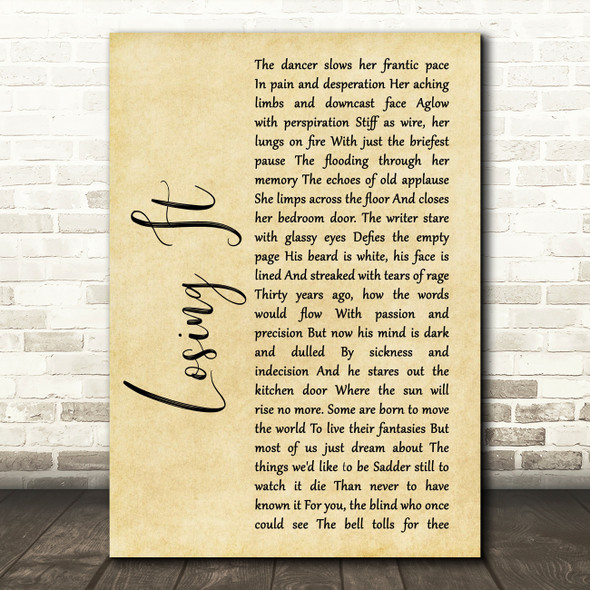 Losing It
The dancer slows her frantic pace
In pain and desperation Her aching
limbs and downcast face Aglow
with perspiration Stiff as wire, her
lungs on fire With just the briefest
pause The flooding through her
memory The echoes of old applause
She limps across the floor And closes
her bedroom door. The writer stare
with glassy eyes Defies the empty
page His beard is white, his face is
lined And streaked with tears of rage
Thirty years ago, how the words
would flow With passion and
precision But now his mind is dark
and dulled By sickness and
indecision And he stares out the
kitchen door Where the sun will
rise no more. Some are born to move
the world To live their fantasies But
most of us just dream about The
things we'd like to be Sadder still to
watch it die Than never to have
known it For you, the blind who once
could see The bell tolls for thee